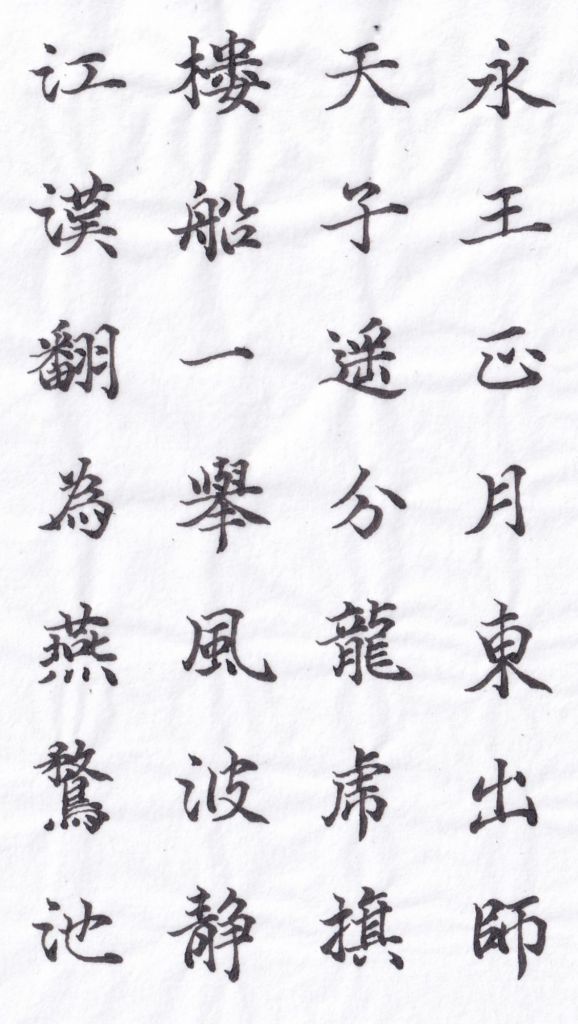 永王正月東出師
天子遥分龍虎旗
樓船一舉風波静
江漢翻為燕鶩池